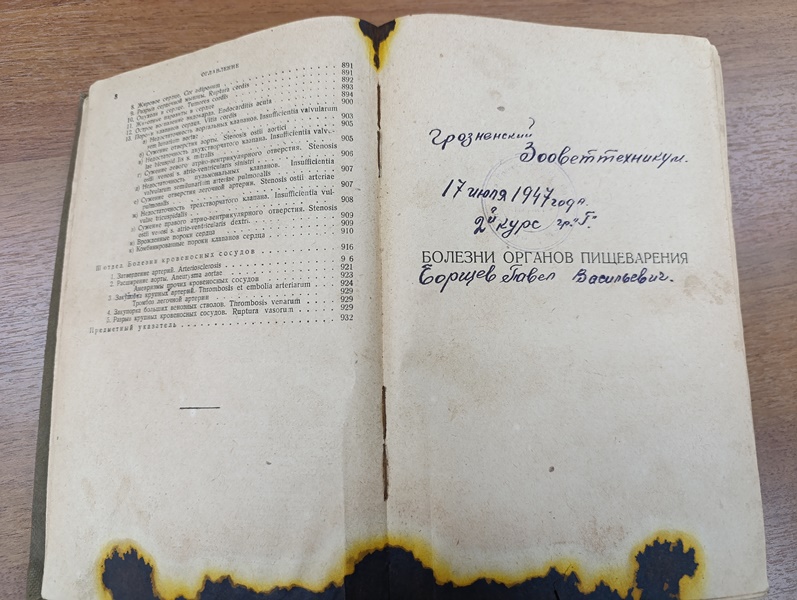 ОГЛАВЛЕНИЕ
8
891
8. Жировое сердце. Cor adiposum 891
9. Разрыв сердечной мышцы. Ruptura cordis 892
10. Опухоли в сердце. Tumores cordis 893
11. Животные паразиты в сердце 894
12. Острое воспаление эндокарда. Endocarditis acuta 900
13. Пороки клапанов сердца. Vitia cordis
а) Недостаточность аортальных клапанов. Insufficientia valvularum
semilunarium aortae 903
б) Сужение отверстия аорты. Stenosis ostii aortici 905
в) Недостаточность двухстворчатого клапана. Insufficientia valv.
905
г) Сужение левого атрио-вентрикулярного отверстия. Stenosis
ostii venosi s. atrio-ventricularis sinistri 906
д) Недостаточность пульмональных клапанов. Insufficientia
valvularum semilunarium arteriae pulmonalis 907
е) Сужение отверстия легочной артерии. Stenosis ostii arteriae
pulmonalis 907
ж) Недостаточность трехстворчатого клапана. Insufficientia vul-
vulae tricuspidalis 908
з) Сужение правого атрио-вентрикулярного отверстия. Stenosis
ostii venosi s. atrio-ventricularis dextri 909
и) Врожденные пороки сердца 909
к) Комбинированные пороки клапанов сердца 910
Болезни кровеносных сосудов 916
1. Затвердение артерий. Arteriosclerosis 9 6
2. Расширение аорты. Aneurysma aortae 921
Аневризмы прочих кровеносных сосудов 923
3. Закупорка крупных артерий. Thrombosis et embolia arteriarum 924
Тромбоз легочной артерии 929
4. Закупорка больших венозных стволов. Thrombosis venarum 929
5. Разрыв крупных кровеносных сосудов. Ruptura vasorum 929
Предметный указатель 932
Грозненский
Зооветтехникум.
17 июля 1947 года.
2й курс гр. "Г".
БОЛЕЗНИ ОРГАНОВ ПИЩЕВАРЕНИЯ
Борщев Павел Васильевич.